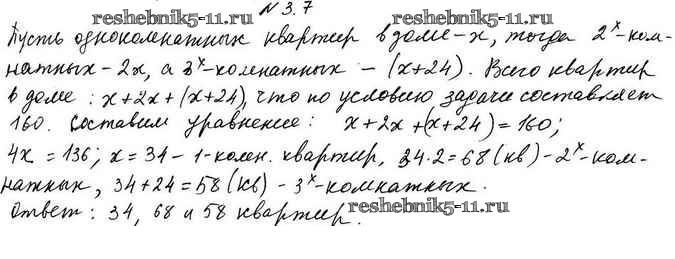 reshebnik5-11.ru № 3.7
Пусть однокомнатных квартир в доме - x, тогда 2ˣ-ком-
натных - 2x, а 3ˣ-комнатных - (x+24). Всего квартир
в доме: x+2x+(x+24), что по условию задачи составляет
160. Составим уравнение: x+2x+(x+24)=160;
4x=136; x=34 - 1-комн. квартир, 34·2=68(кв)-2ˣ-ком-
натных, 34+24=58(кв) - 3ˣ-комнатных.
reshebnik5-11.ru
Ответ: 34, 68 и 58 квартир.